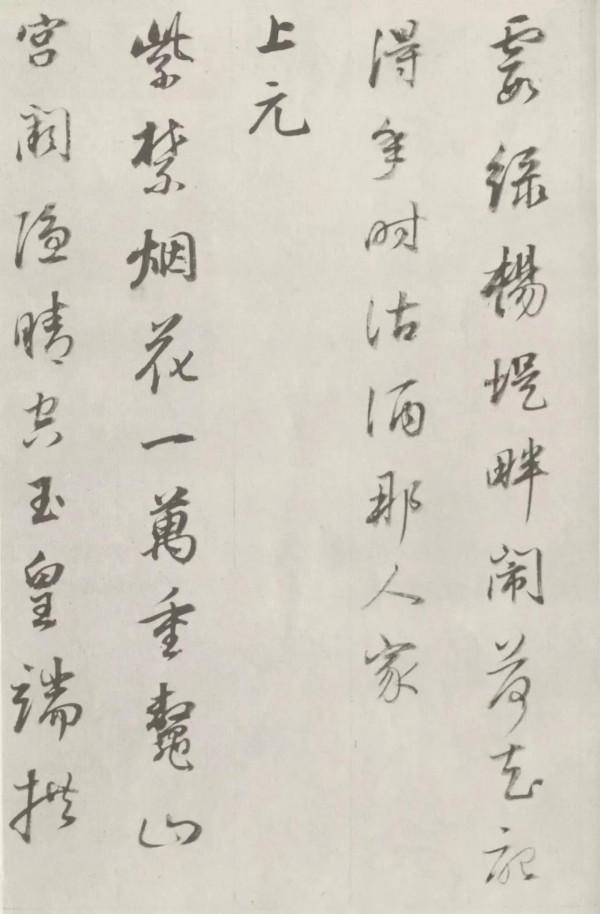 霞綠楊堤畔鬧荷花記
得年時沽酒那人家
上元
紫禁烟花一萬重鼇山
宮闕隱晴空玉皇端拱